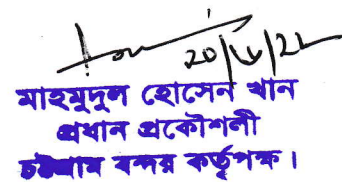 মাহমুদুল হোসেন খান
প্রধান প্রকৌশলী
চট্টগ্রাম বন্দর কর্তৃপক্ষ।